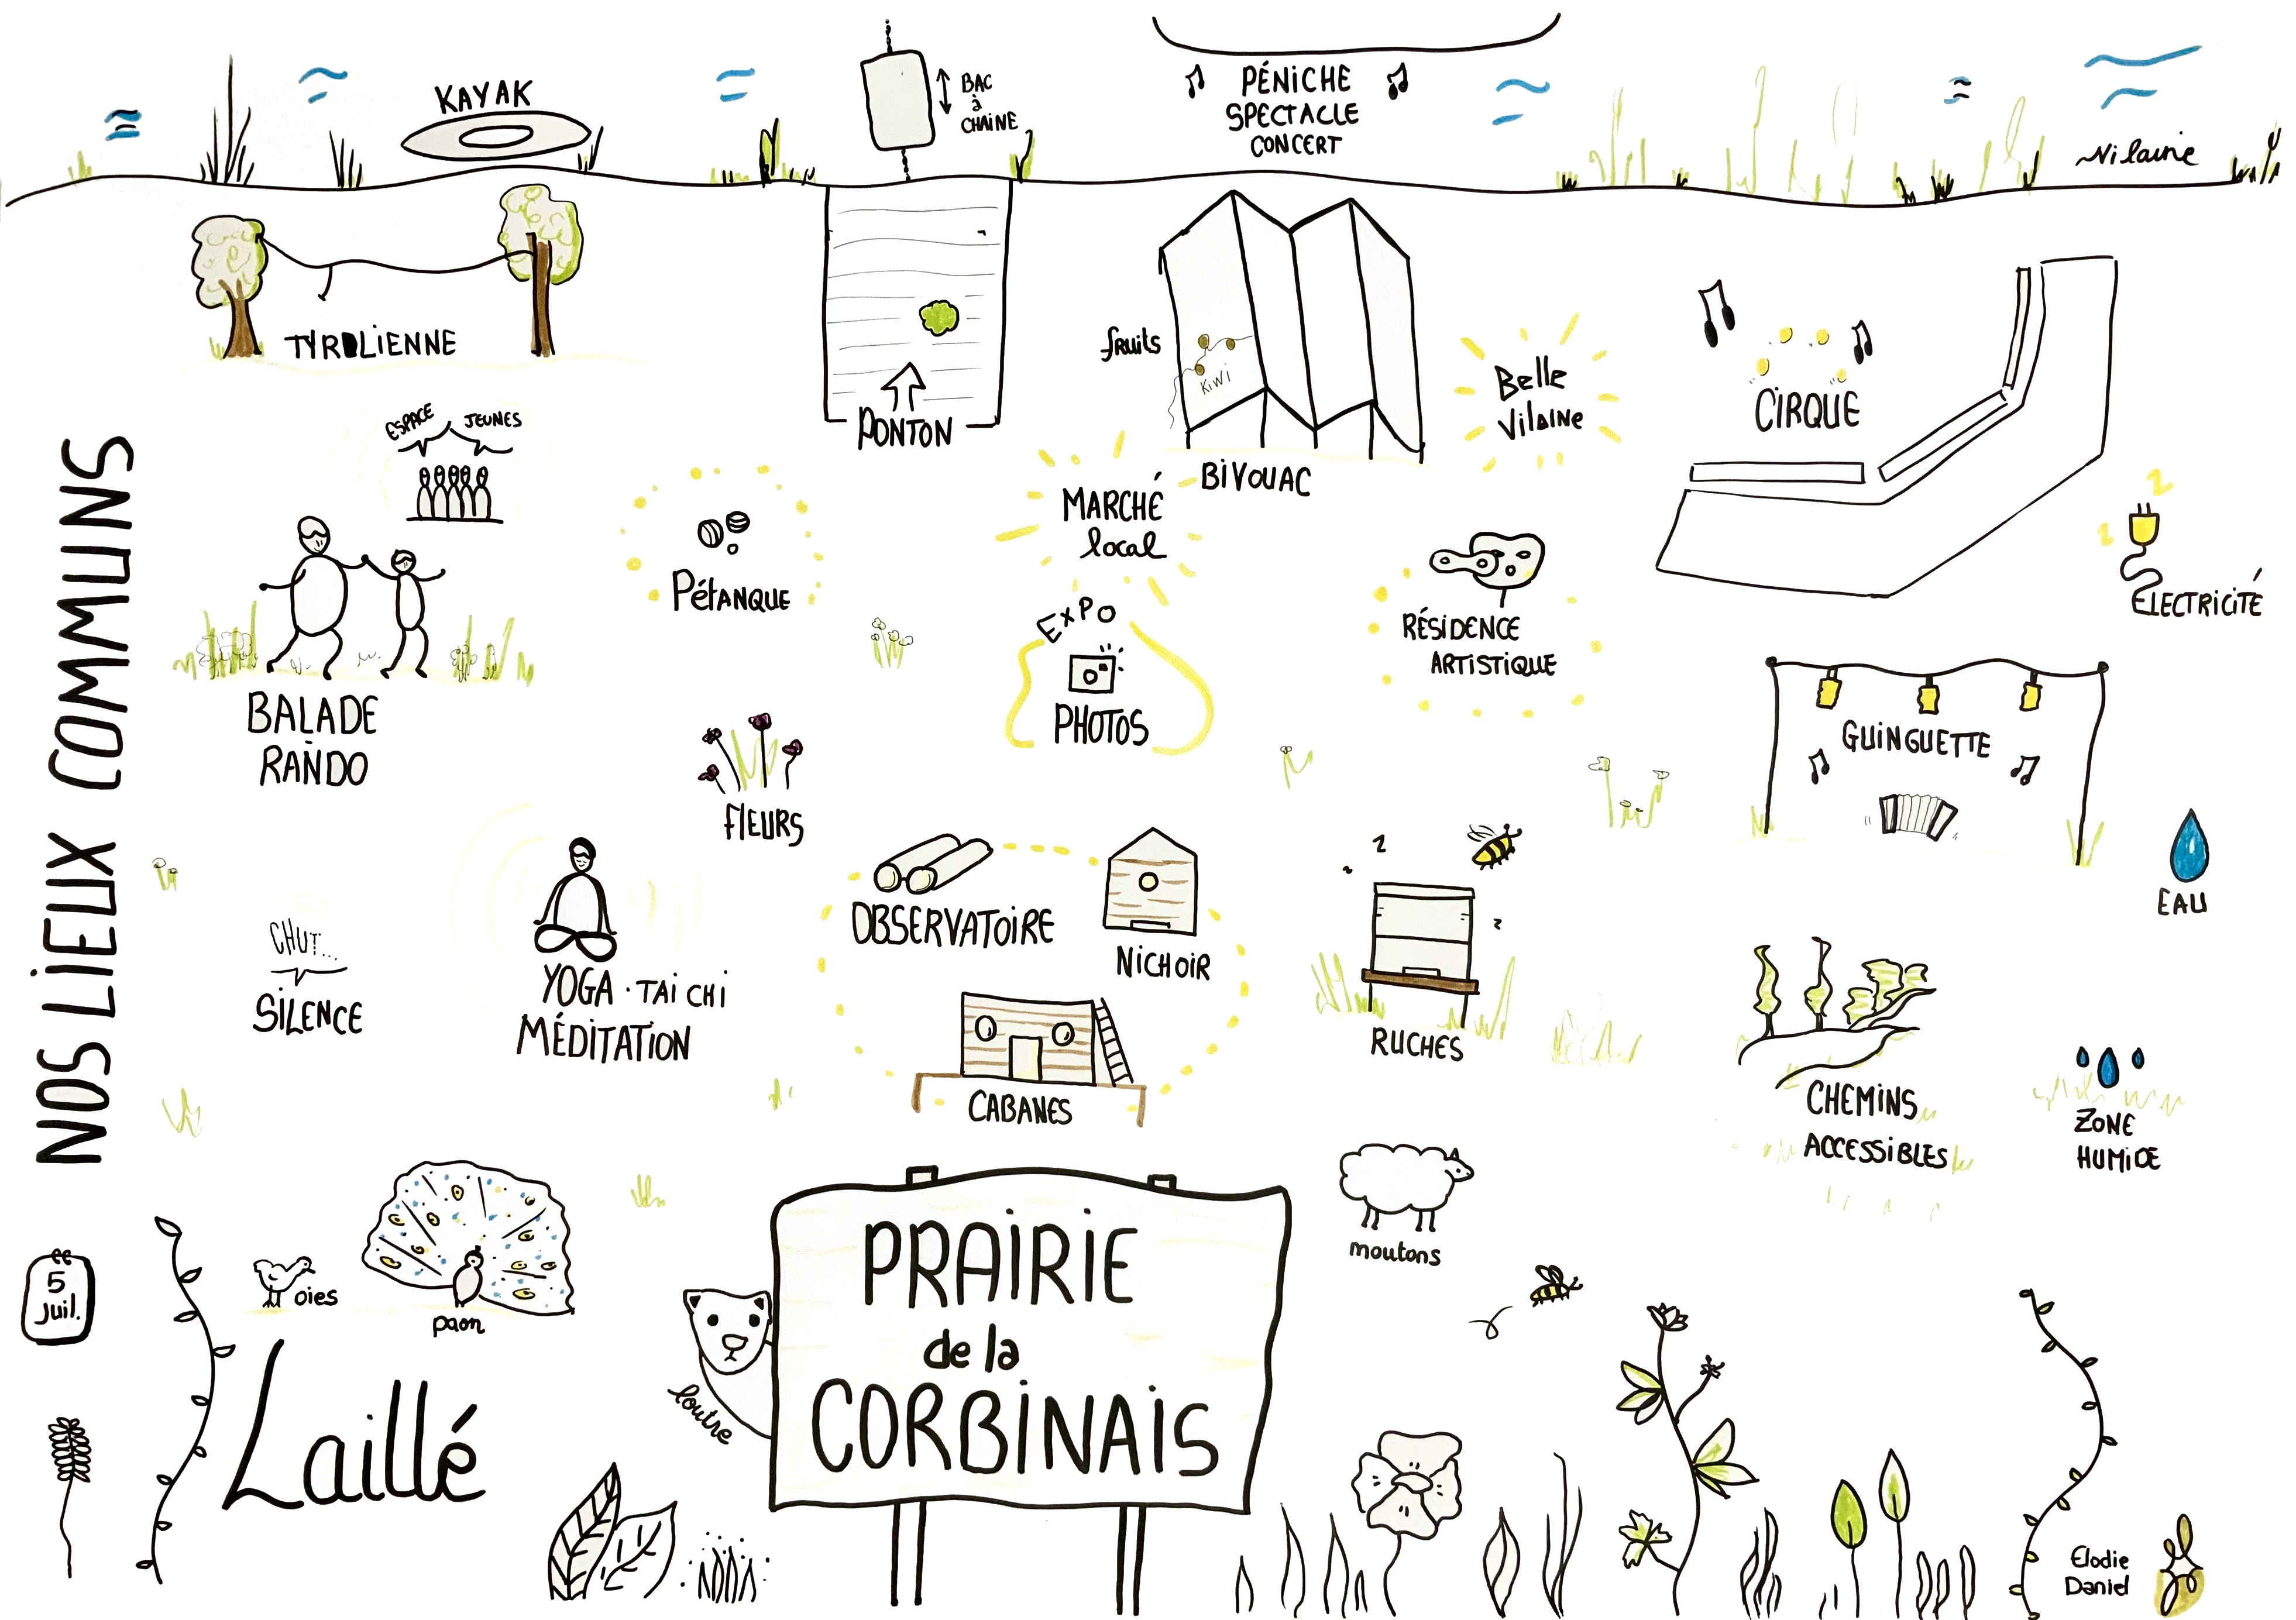 KAYAK
BAC
à
CHAINE
PÉNICHE
SPECTACLE
CONCERT
Vilaine
TYROLIENNE
ESPACE JEUNES
PONTON
fruits
KIWI
BIVOUAC
Belle
Vilaine
CIRQUE
MARCHÉ
local
Pétanque
EXPO
PHOTOS
RÉSIDENCE
ARTISTIQUE
ÉLECTRICITÉ
BALADE
RANDO
FLEURS
GUINGUETTE
EAU
NOS LIEUX COMMUNS
CHUT...
SILENCE
YOGA · TAI CHI
MÉDITATION
OBSERVATOIRE
NICHOIR
CABANES
RUCHES
CHEMINS
ACCESSIBLES
ZONE
HUMIDE
5
Juil.
oies
paon
Laillé
loutre
PRAIRIE
de la
CORBINAIS
moutons
Elodie
Daniel